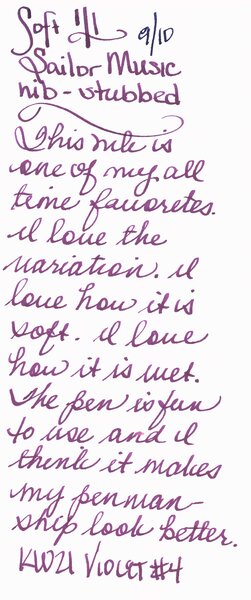 Soft 9/10
Sailor Music
nib - stubbed
This nib is
one of my all
time favoretes.
I love the
variation. I
love how it is
soft. I love
how it is wet.
The pen is fun
to use and I
think it makes
my penman-
ship look better.
KWZI VIOLET #4